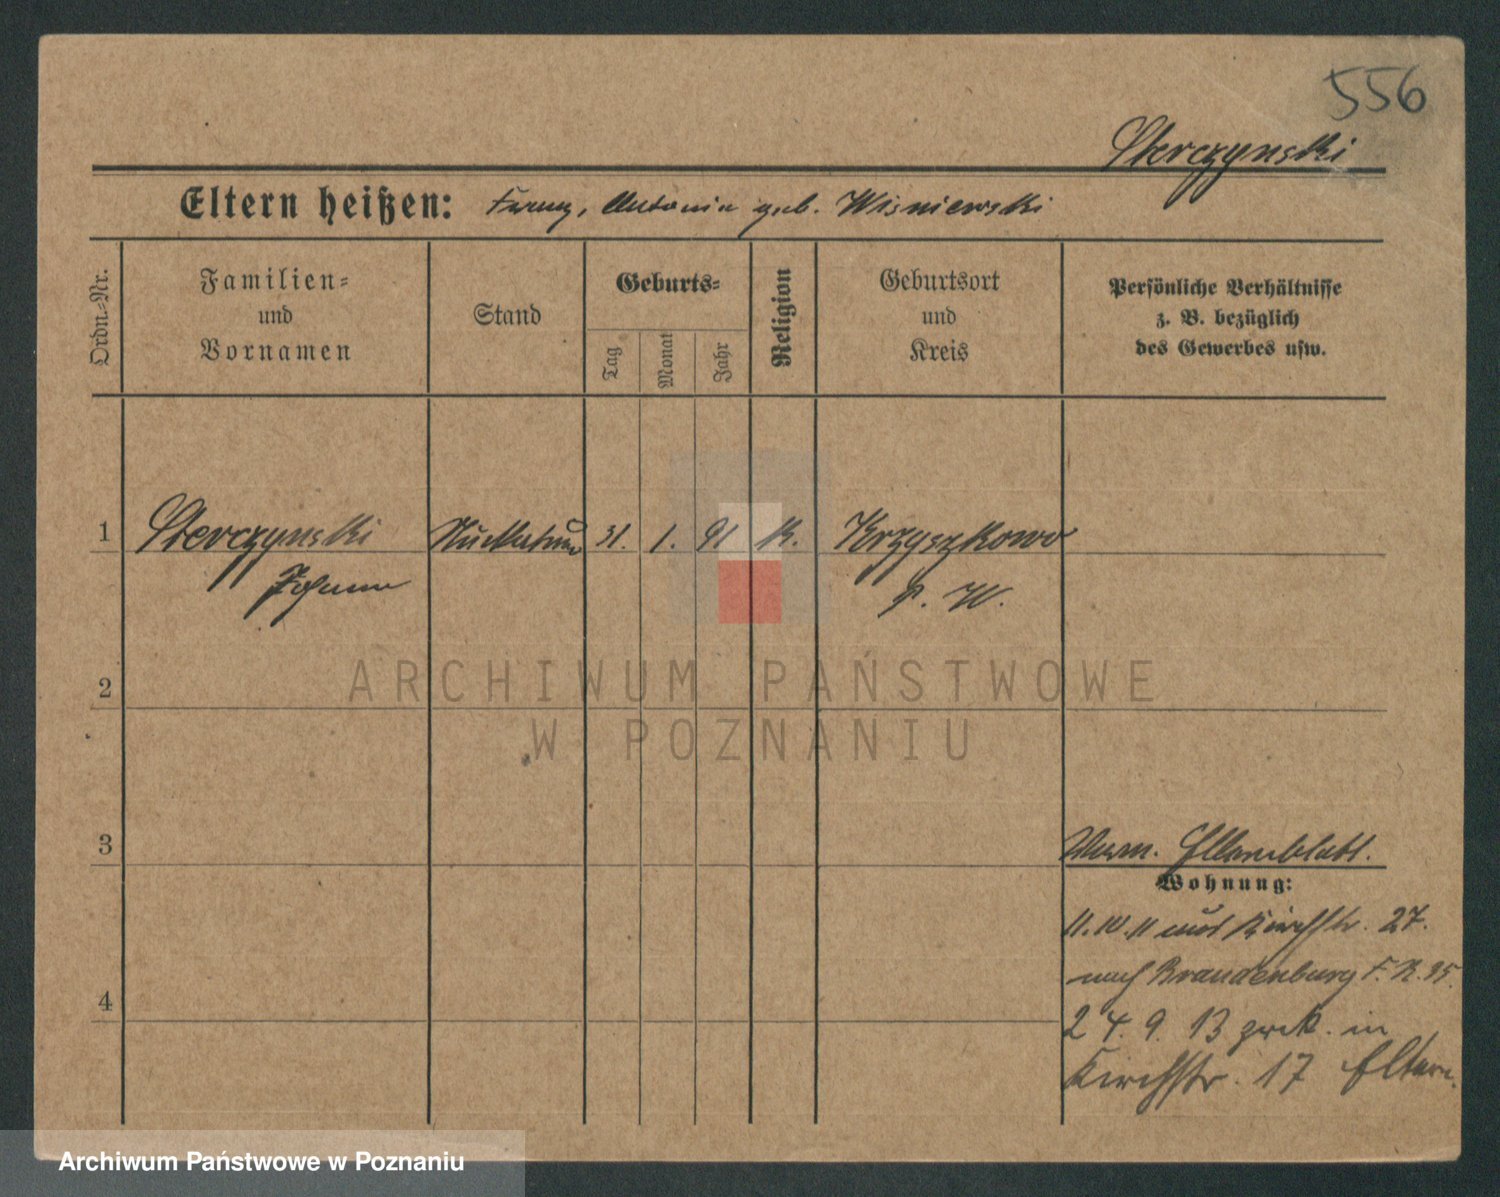 556
Sterczynski
Eltern heißen: Franz, Antonie geb. Wisniewski
Ordn.-Nr.
Familien-
und
Vornamen
Stand
Geburts-
Tag
Monat
Jahr
Religion
Geburtsort
und
Kreis
Persönliche Verhältnisse
z. B. bezüglich
des Gewerbes usw.
1 Sterczynski 31. 1. 91 K. Krzyszkowo
Johann P. W.
ARCHIWUM PAŃSTWOWE
W POZNANIU
2
3
Elternblatt.
Wohnung:
11.10.11 aus Kirchstr. 27.
nach Brandenburg F. R. 35.
4
24. 9. 13 zurück in
Kirchstr. 17 Eltern.
Archiwum Państwowe w Poznaniu